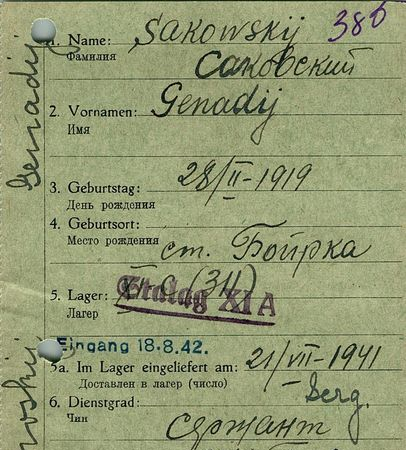 386
1. Name: Sakowskij
Фамилия Саковский
2. Vornamen: Genadij
Имя
Genadij
3. Geburtstag: 28/II-1919
День рождения
4. Geburtsort:
Место рождения ст. Бойрка
5. Lager: XI C (311)
Лагер Stalag XI A
Eingang 18.8.42.
5a. Im Lager eingeliefert am: 21/VII-1941
Доставлен в лагер (число)
6. Dienstgrad: Serg.
Чин сержант